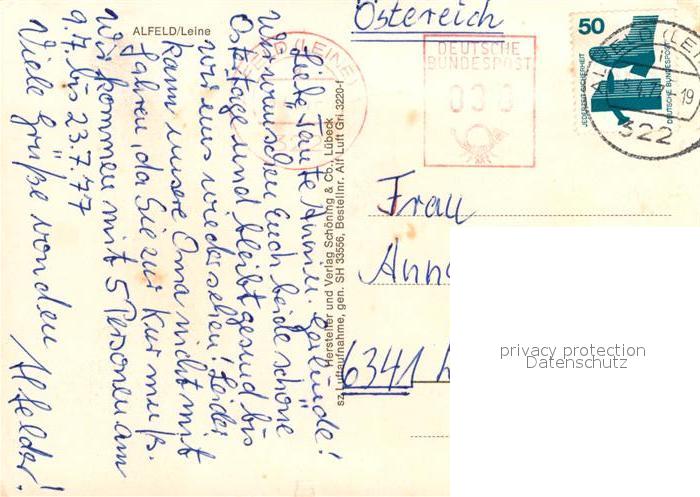 ALFELD/Leine
Liebe Tante Annien. Gerlinde!
Wir wünschen Euch beide schöne
Ostertage und bleibt gesund bis
wir uns wiedersehen! Leider
kann unsere Oma nicht mit
fahren, da Sie zur Kur muß.
Wir kommen mit 5 Personen am
9.7. bis 23.7.77
Viele Grüße von den Alfelder!
Hersteller und Verlag Schöning & Co., Lübeck
sz Luftaufnahme, gen. SH 33556, Bestellnr. Alf Luft Gri 3220-f
Österreich
DEUTSCHE
BUNDESPOST
50
JEDERZEIT SICHERHEIT
DEUTSCHE BUNDESPOST
322
Frau
Ann
6341
privacy protection
Datenschutz